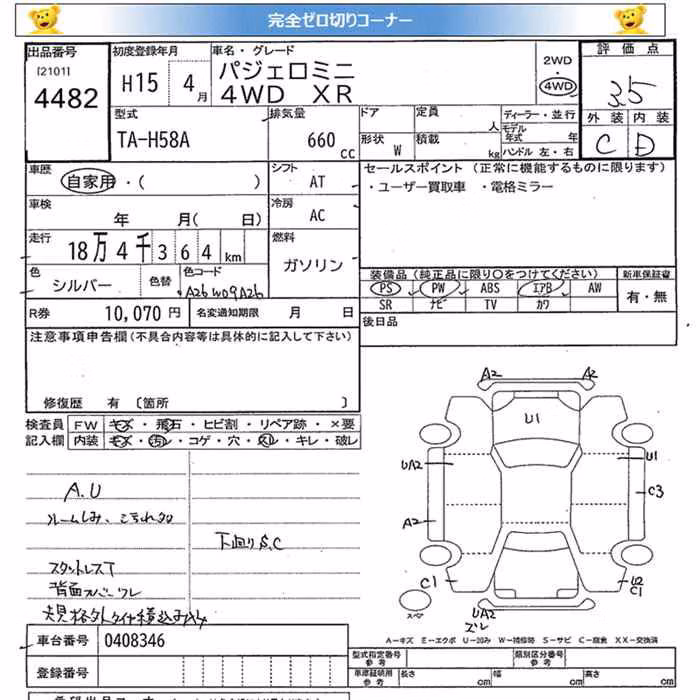 完全ゼロ切りコーナー
出品番号 初度登録年月 車名・グレード 評価点
[2101] パジェロミニ 2WD
4482 H15 4月 4WD XR 4WD 3.5
型式 排気量 ドア 定員 人 ディーラー・並行 外装 内装
TA-H58A 660cc 形状 W 積載 kg モデル年式 年 C D
ハンドル 左・右
車歴 シフト セールスポイント (正常に機能するものに限ります)
自家用・( ) AT ・ユーザー買取車 ・電格ミラー
車検 冷房
年 月( 日) AC
走行 燃料
18万4千364km ガソリン
色 色替 色コード 装備品(純正品に限り○をつけてください) 新車保証書
シルバー A26 W09 A26 PS PW ABS エアB AW 有・無
SR ナビ TV カワ
R券 10,070円 名変通知期限 月 日 後日品
注意事項申告欄(不具合内容等は具体的に記入して下さい)
修復歴 有 〔箇所 〕
検査員 FW キズ・飛石・ヒビ割・リペア跡・×要
記入欄 内装 キズ・汚レ・コゲ・穴・スレ・キレ・破レ
A2 A2
U1
UA2 U1
C3
A2
C1 U2
C1
スペア UA2
ズレ
A.U
ルームしみ、こげれ多
下回りS.C
スタットレスT
背面スペーワレ
規格外タイヤ積込みｻｲ
A-キズ E-エクボ U-凹み W-補修跡 S-サビ C-腐食 XX-交換済
車台番号 0408346 型式指定番号 参考 類別区分番号 参考
登録番号 車庫証明用 参考 長さ cm 幅 cm 高さ cm